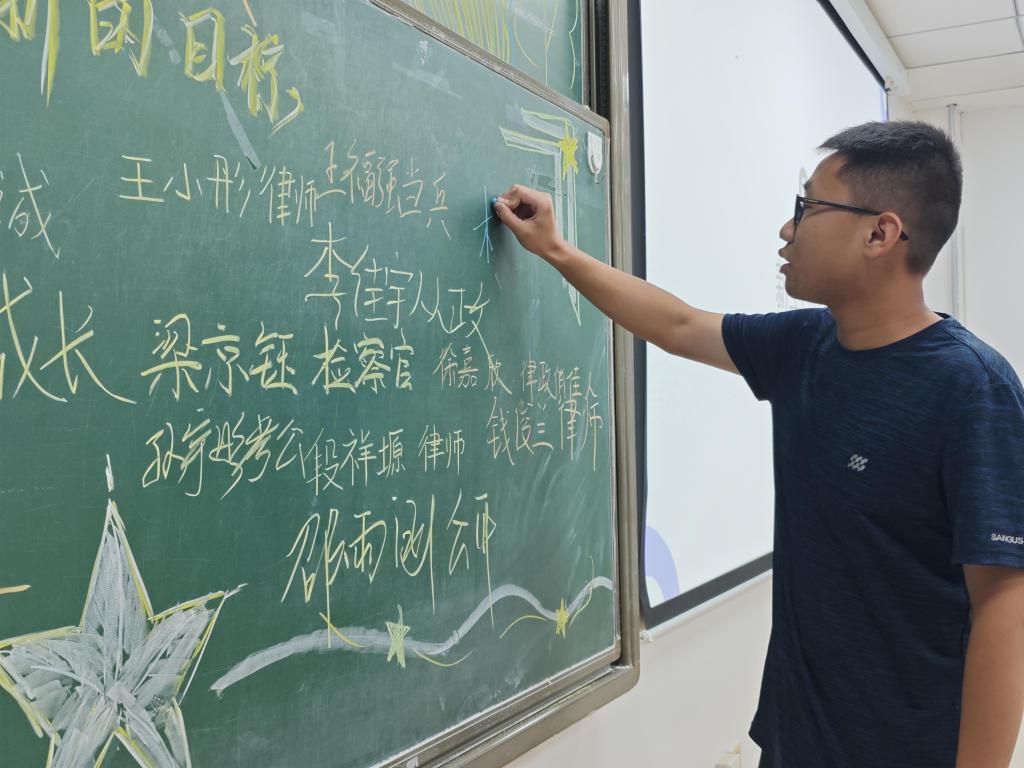 的目标
王小彤律师 王福强当兵
诚
李佳宇从政
成长 梁京钰 检察官 徐嘉 律政俏佳人
孙宇彤考公 段祥塬 律师 钱俊三律师
邵雨涵公
SANGUS